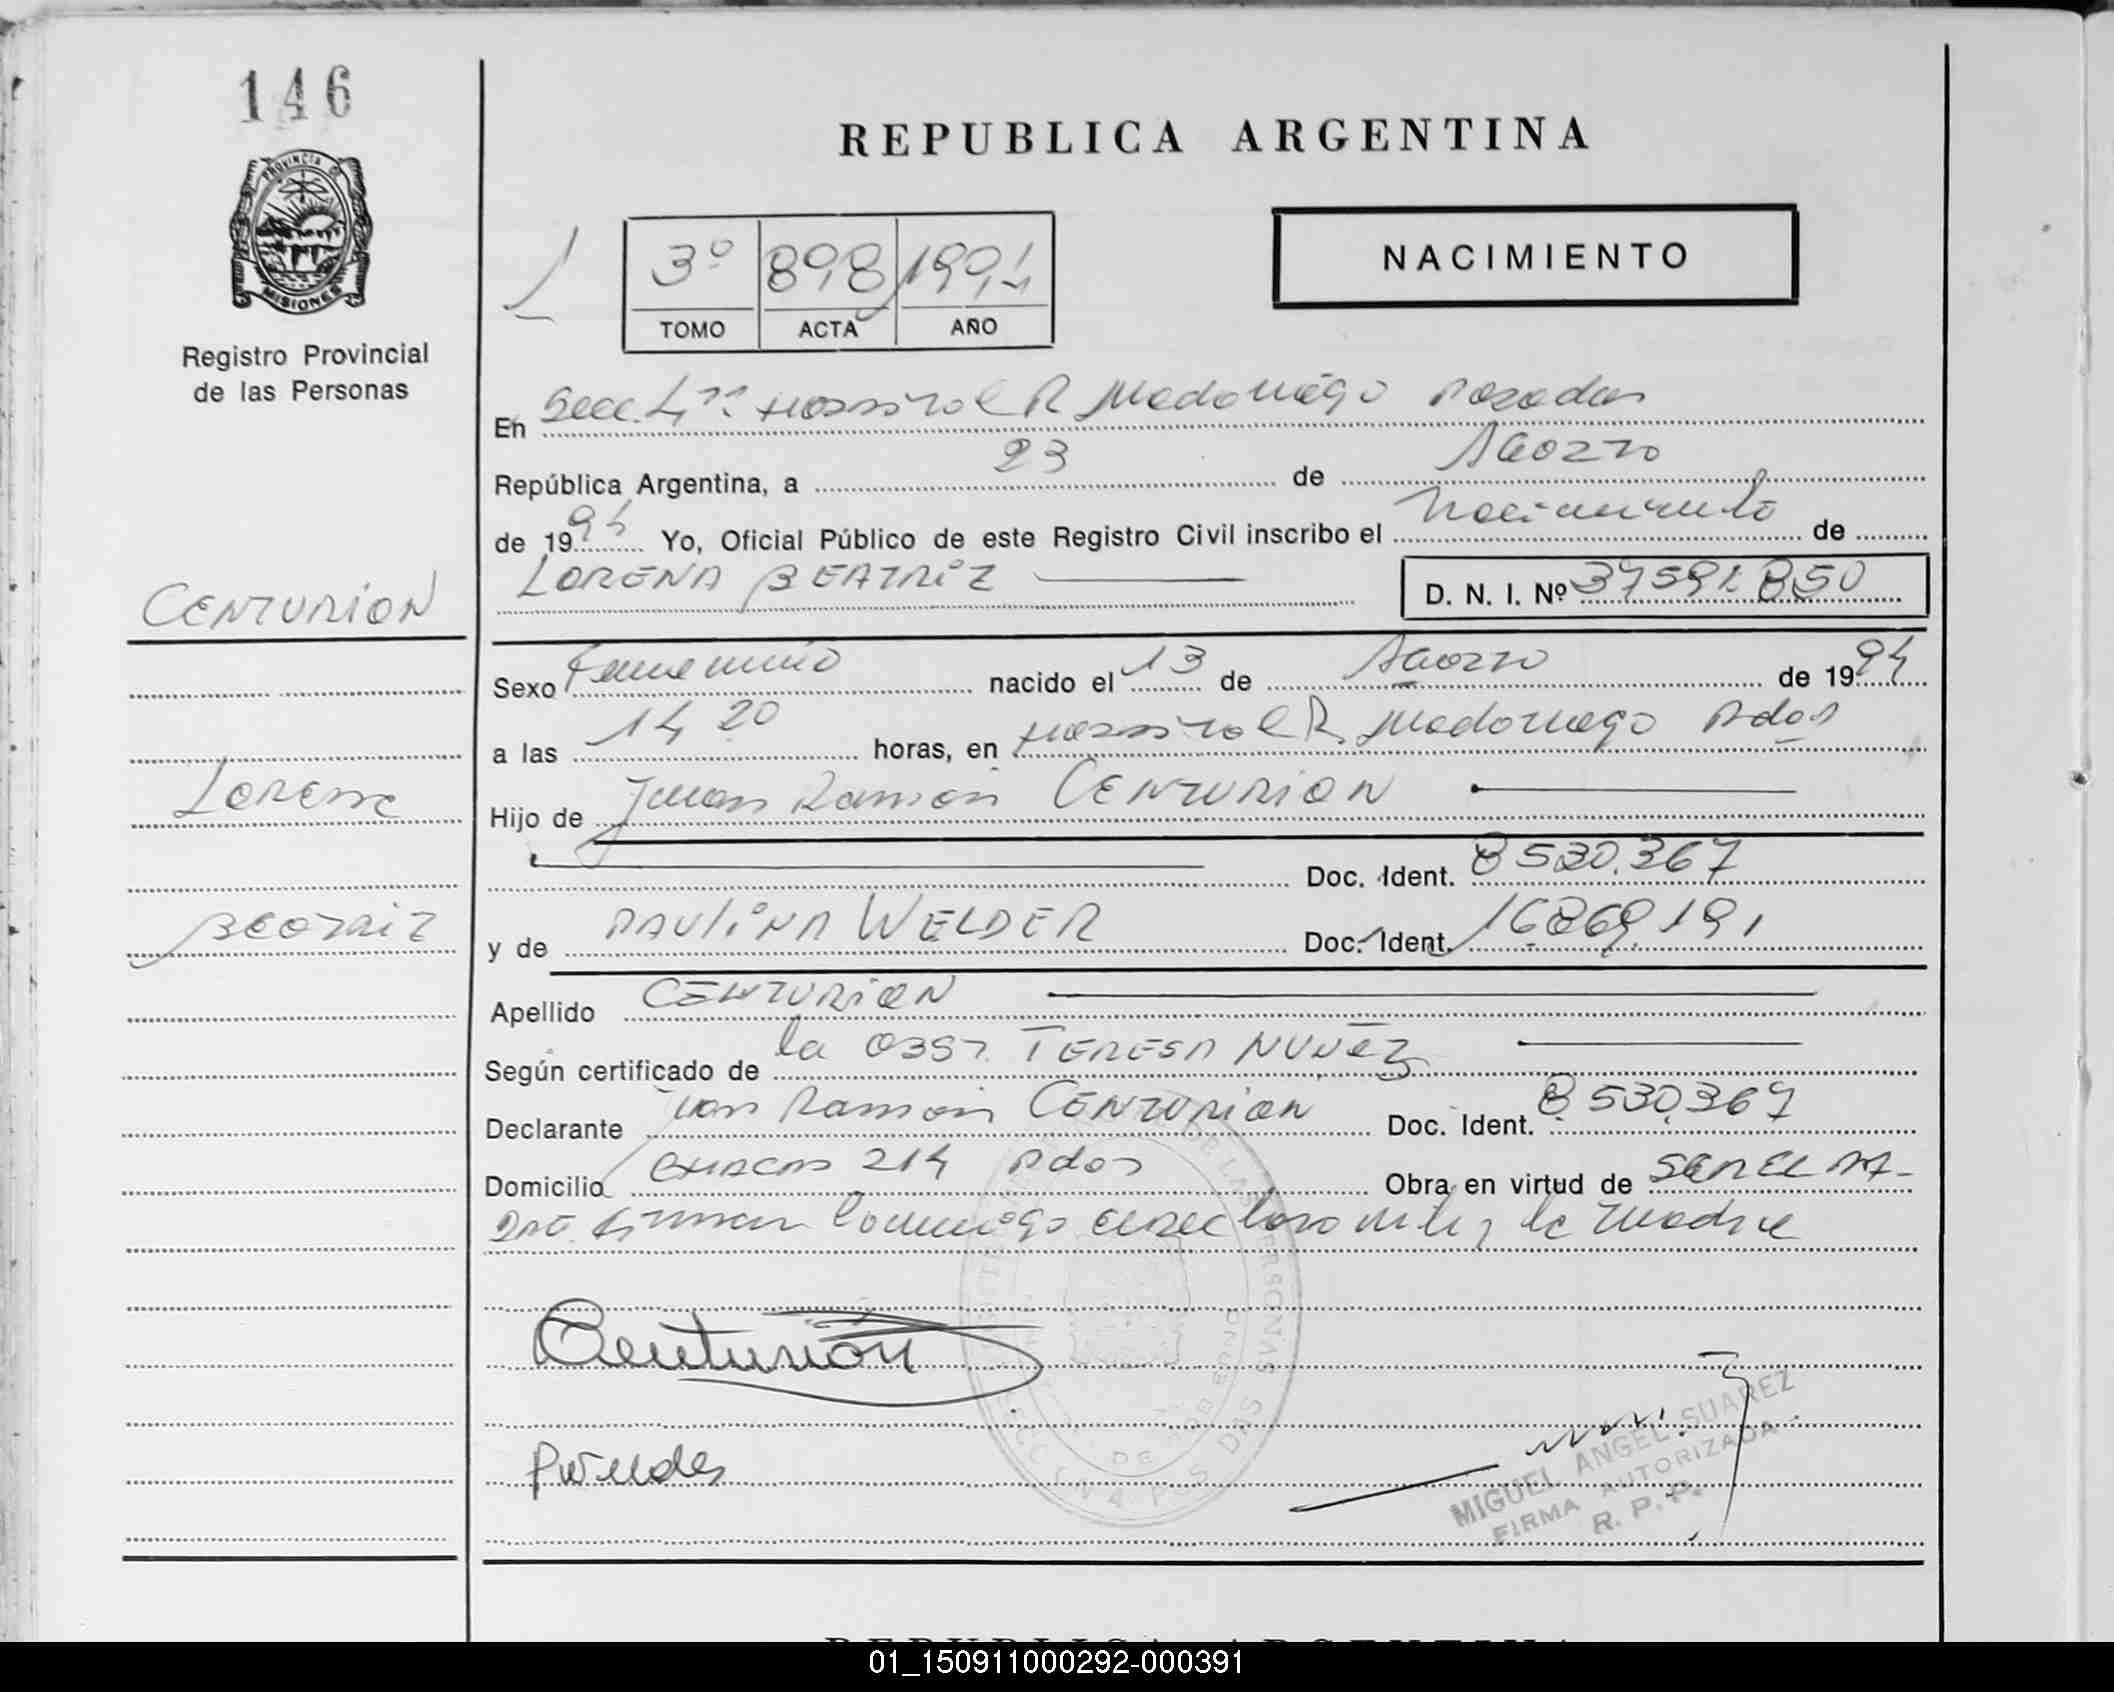 146
REPUBLICA ARGENTINA
PROVINCIA DE
MISIONES
Registro Provincial
de las Personas
NACIMIENTO
3º 898 1994
TOMO ACTA AÑO
En Secc. 4ta Hospital R Madariaga Posadas
República Argentina, a 23 de Agosto
de 1994 Yo, Oficial Público de este Registro Civil inscribo el Nacimiento de
LORENA BEATRIZ D. N. I. Nº 37591850
CENTURION
Sexo Femenino nacido el 13 de Agosto de 1994
a las 14 20 horas, en Hospital R. Madariaga Pdas
Lorena
Hijo de Juan Ramon CENTURION
Doc. Ident. 8530.367
Beatriz
y de PAULINA WELDER Doc. Ident. 16869191
Apellido CENTURION
Según certificado de la Obst. TERESA NUÑEZ
Declarante Juan Ramon CENTURION Doc. Ident. 8530367
Domicilio CHACAS 214 Pdas Obra en virtud de SER EL PA-
DRE. Firman conmigo el declarante y la madre
Centurión
PWelder
MIGUEL ANGEL SUAREZ
FIRMA AUTORIZADA
R. P. P.
REPUBLICA ARGENTINA
01_150911000292-000391